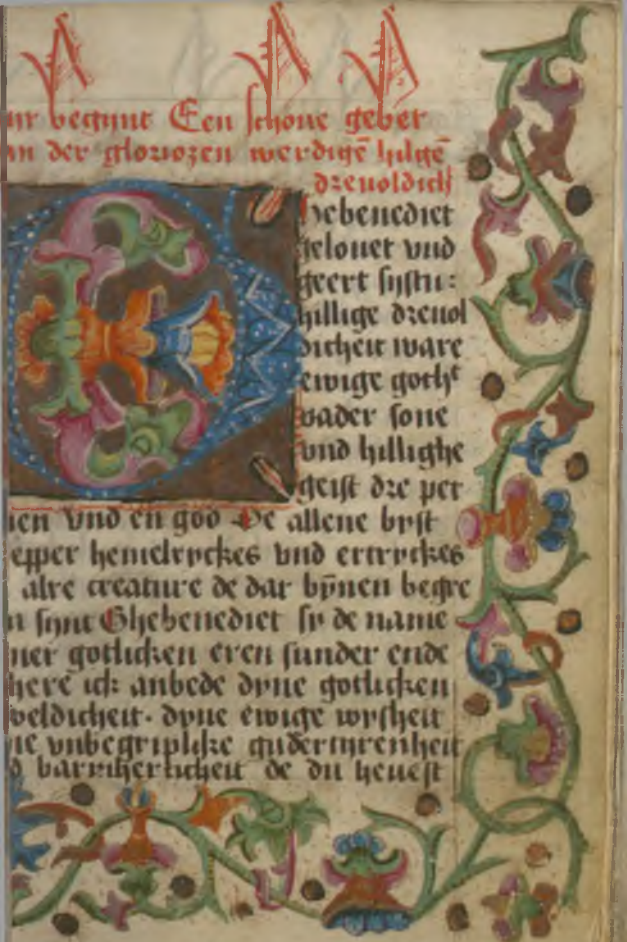 begynt Een schone gebet
an der gloriozen werdigē hilgē
dreuoldich
hebenediet
gelouet vnd
geert systu:
hillige dreuol
dicheit ware
ewige goth
vader sone
vnd hillighe
geist dre per
en vnd en god De allene byst
epper hemelryckes vnd ertryckes
alre creature de dar bynen begre
n synt Ghebenediet sy de name
ner gotlicken eren sunder ende
here ick anbede dyne gotlicken
weldicheit. dyne ewige wysheit
ne vnbegriplicke gudertyrenheit
barmherticheit de du heuest